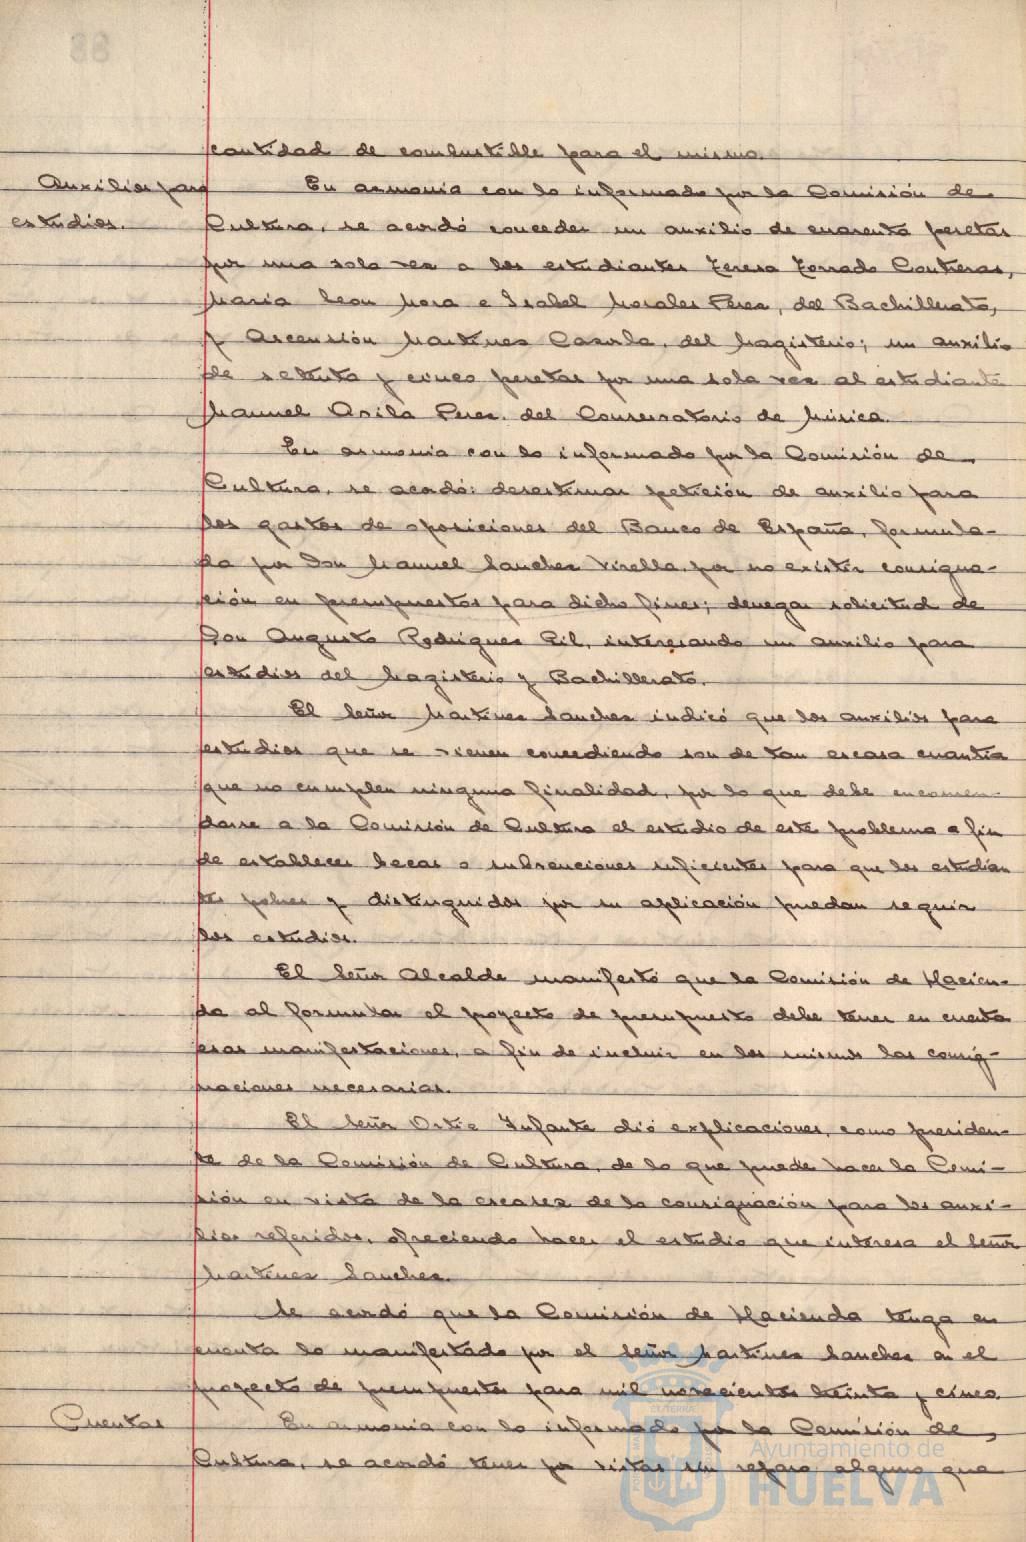 88
cantidad de combustible para el mismo.
Auxilios para
estudios.
En armonia con lo informado por la Comisión de
Cultura, se acordó conceder un auxilio de cuarenta pesetas
por una sola vez a los estudiantes Teresa Torrado Contreras,
Maria Leon Mora e Isabel Morales Perez, del Bachillerato,
y Ascensión Martinez Cazorla, del Magisterio; un auxilio
de setenta y cinco pesetas por una sola vez al estudiante
Manuel Avila Perez del Conservatorio de Música.
En armonia con lo informado por la Comisión de
Cultura, se acordó: desestimar petición de auxilio para
los gastos de oposiciones del Banco de España, formula-
da por Don Manuel Sanchez Virella, por no existir consigna-
ción en presupuestos para dicho fines; denegar solicitud de
Don Augusto Rodriguez Gil, interesando un auxilio para
estudios del Magisterio y Bachillerato.
El Señor Martinez Sanchez indicó que los auxilios para
estudios que se vienen concediendo son de tan escasa cuantia
que no cumplen ninguna finalidad, por lo que debe encomen-
darse a la Comisión de Cultura el estudio de este problema a fin
de establecer becas o subvenciones suficientes para que los estudian
tes pobres y distinguidos por su aplicación puedan seguir
los estudios.
El Señor Alcalde manifestó que la Comisión de Hacien-
da al formular el proyecto de presupuesto debe tener en cuenta
esas manifestaciones, a fin de incluir en los mismos las consig-
naciones necesarias.
El Señor Ortiz Infante dió explicaciones, como presiden-
te de la Comisión de Cultura, de lo que puede hacer la Comi-
sión en vista de la escasez de la consignación para los auxi-
lios referidos, ofreciendo hacer el estudio que interesa el Señor
Martinez Sanchez.
Se acordó que la Comisión de Hacienda tenga en
cuenta lo manifestado por el Señor Martinez Sanchez en el
proyecto de presupuestos para mil novecientos treinta y cinco.
Cuentas
En armonia con lo informado por la Comisión de
Cultura, se acordó tener por vistas sin reparo alguno que
Ayuntamiento de
HUELVA